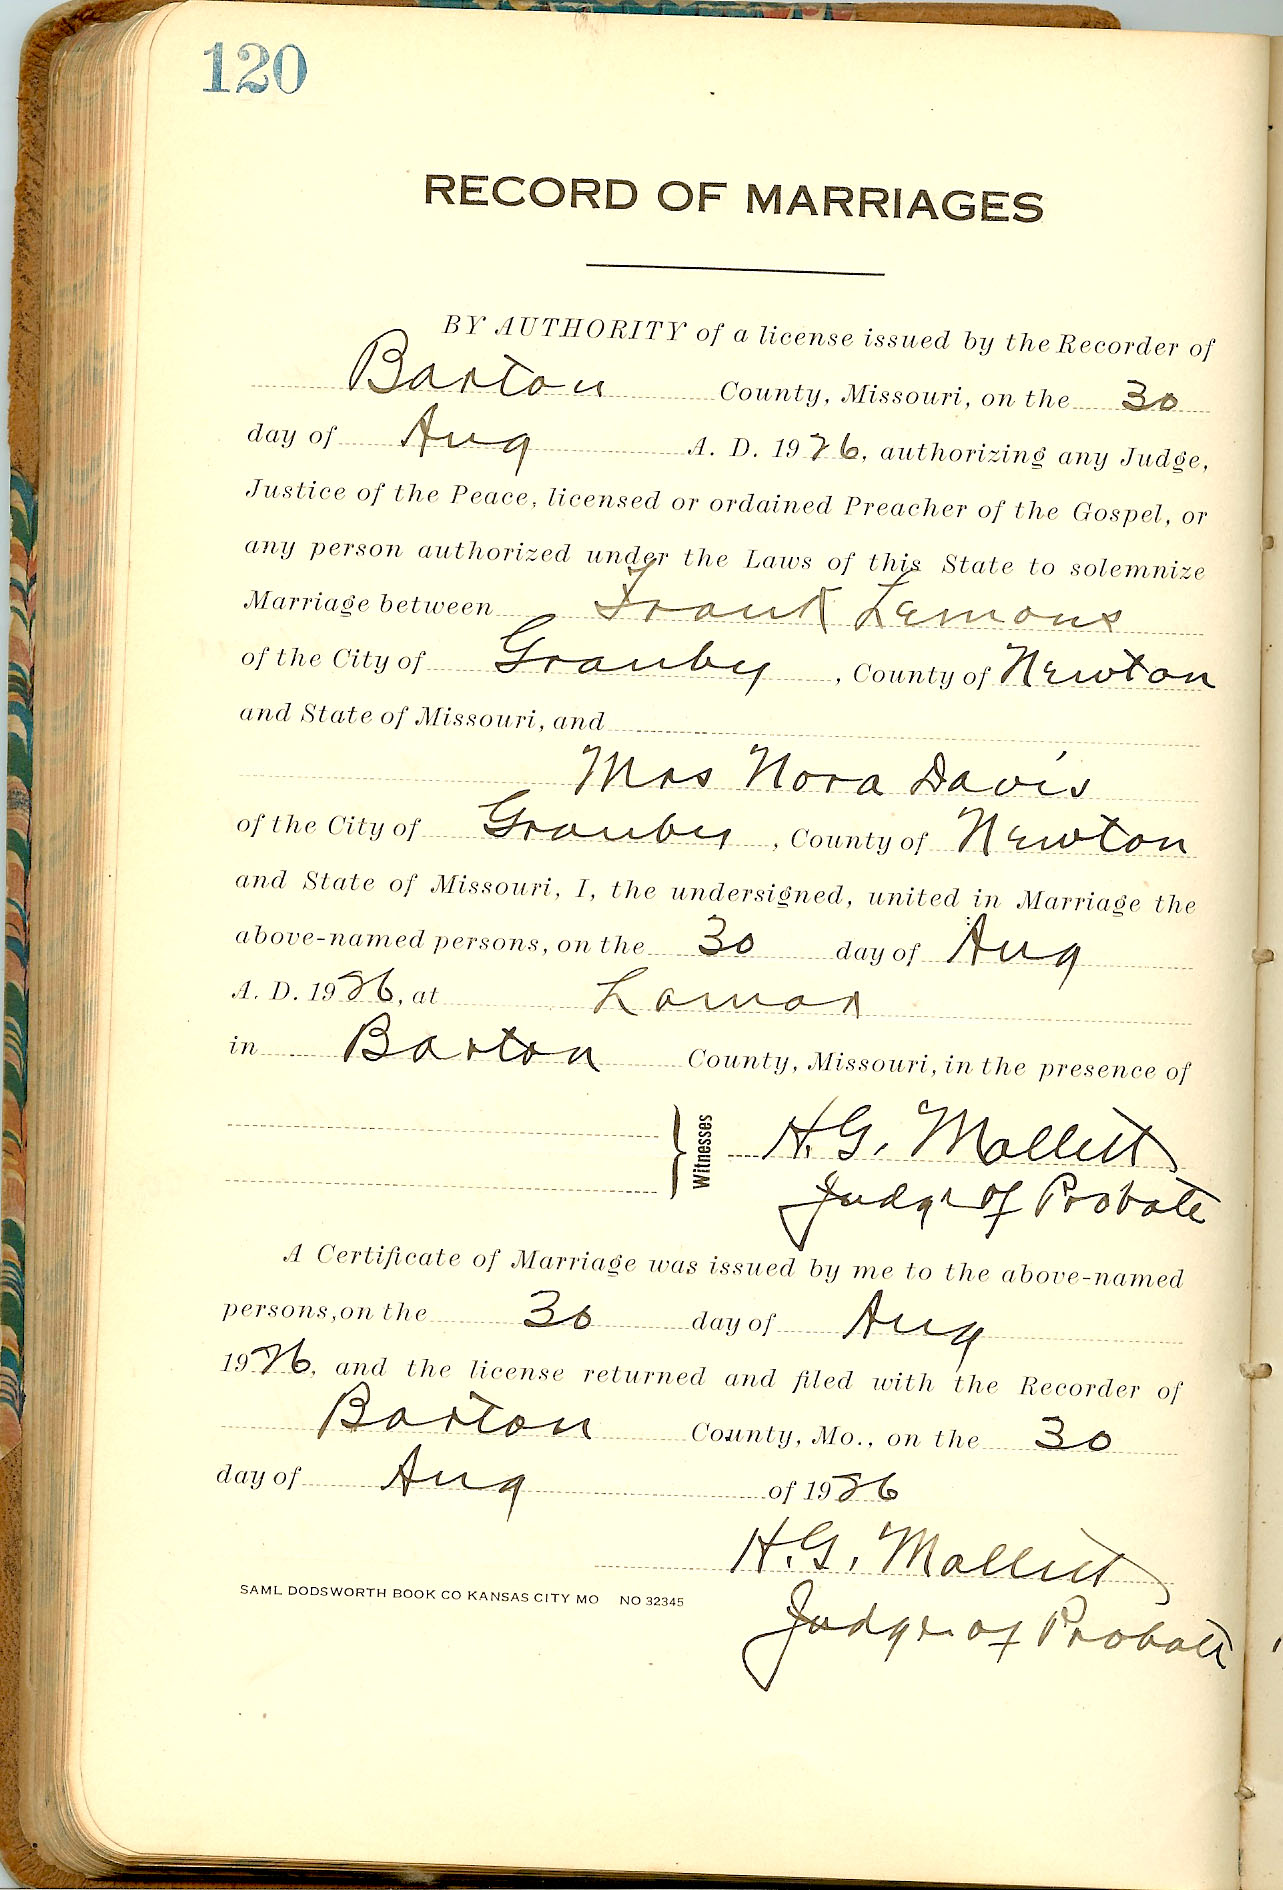 120
RECORD OF MARRIAGES
BY AUTHORITY of a license issued by the Recorder of
Barton County, Missouri, on the 30
day of Aug A. D. 1926, authorizing any Judge,
Justice of the Peace, licensed or ordained Preacher of the Gospel, or
any person authorized under the Laws of this State to solemnize
Marriage between Frank Lemons
of the City of Granby, County of Newton
and State of Missouri, and
Mrs Nora Davis
of the City of Granby, County of Newton
and State of Missouri, I, the undersigned, united in Marriage the
above-named persons, on the 30 day of Aug
A. D. 1926, at Lamar
in Barton County, Missouri, in the presence of
Witnesses H. G. Mallett
Judge of Probate
A Certificate of Marriage was issued by me to the above-named
persons, on the 30 day of Aug
1926, and the license returned and filed with the Recorder of
Barton County, Mo., on the 30
day of Aug of 1926
H. G. Mallett
SAML DODSWORTH BOOK CO KANSAS CITY MO NO 32345
Judge of Probate